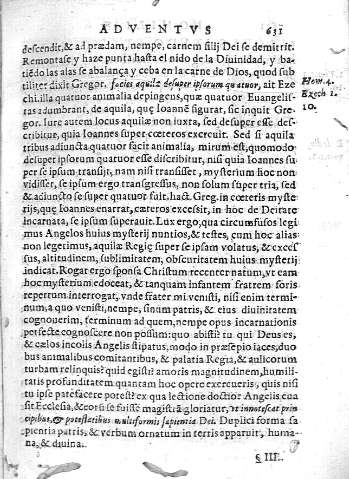 ADVENTVS 631
descendit, & ad prædam, nempe, carnem filij Dei se demittit.
Remontase y haze punta hasta el nido de la Diuinidad, y ba-
tiẽdo las alas se abalança y ceba en la carne de Dios, quod sub
tiliter dixit Gregor. facies aquilæ desuper ipsorum quatuor, ait Eze
chi. illa quatuor animalia depingens, quæ quatuor Euangelis
tas adumbrant, de aquila, quę Ioannē sigurat, sic inquit Gre-
gor. Iure autem locus aquilæ non iuxta, sed desuper esse des-
cribitur, quia Ioannes super cæteros exercuit. Sed si aquila
tribus adiuncta quatuor facit animalia, mirum est, quomodo
desuper ipsorum quatuor esse discribitur, nisi quia Ioannes su-
per se ipsum transijt, nam nisi transisset, mysterium hoc non
vidisset, se ipsum ergo transgressus, non solum super tria, sed
& adiuncto se super quatuor fuit. hæct. Greg. in cæteris myste
rijs, quę Ioannes enarrat, cæteros excessit, in hoc de Deitate
incarnata, se ipsum superauit. Lux ergo, qua circumfusos legi
mus Angelos huius mysterij nuntios, & testes, cum hoc alias-
non legerimus, aquilæ Regię super se ipsam volatus, & excess
sus, altitudinem, sublimitatem, obscuritatem huius mysterij
indicat. Rogat ergo sponsa Christum recenter natum, vt eam
hoc mysterium edoceat, & tanquam infantem fratrem foris
repertum interrogat, vnde frater mi venisti, nisi enim termi-
num, a quo venisti, nempe, sinum patris, & eius diuinitatem
cognouerim, terminum ad quem, nempe opus incarnationis
perfecte cognoscere non possim: quo abisti? tu qui Deus es,
& cælos incolis Angelis stipatus, modo in præsepio iaces, duo
bus animalibus comitantibus, & palatia Regia, & aulicorum
turbam relinquis? quid egisti? amoris magnitudinem, humili-
tatis profunditatem quantam hoc opere exercueris, quis nisi
tu ipse patefacere potest? ex qua lectione doctior Angelis eua
sit Ecclesia, & eorū se fuisse magistrā gloriatur, vt innotescat prin
cipibus, & potestatibus multiformis sapientia Dei. Duplici forma sa
pientia patris, & verbum ornatum in terris apparuit, huma-
na, & diuina.
§ III.
Hom. 4.
Ezech 1.
10.